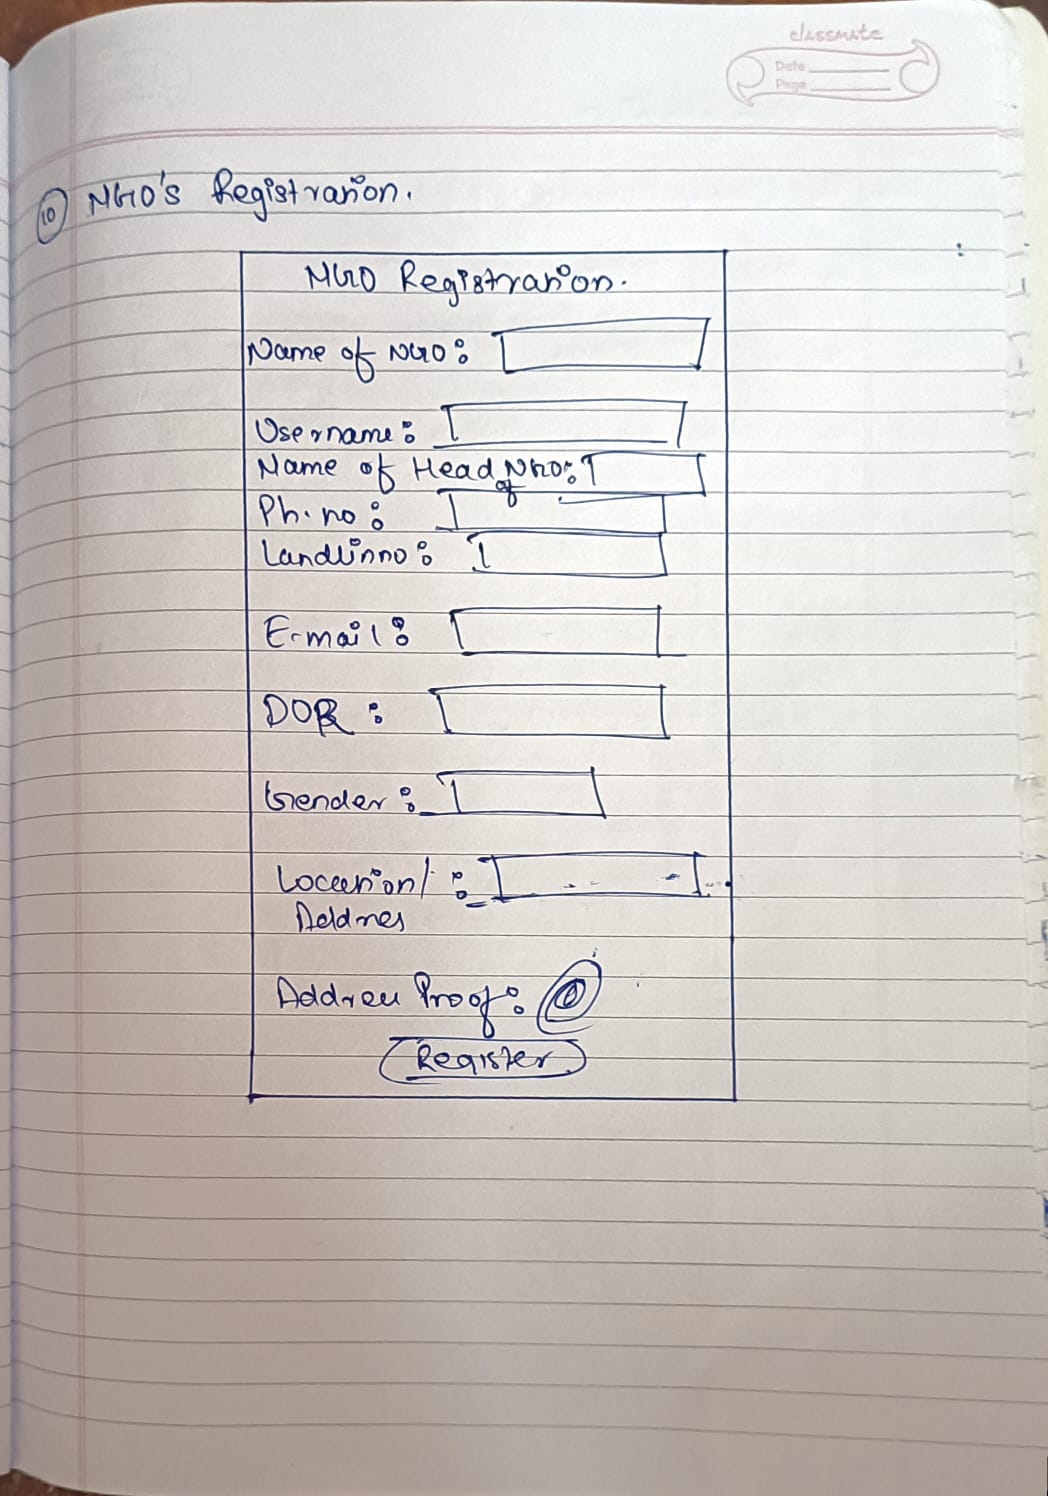 classmate
Date
Page
10 NGO's Registration.
NGO Registration.
Name of NGO:
Username:
Name of Head of NGO:
Ph.no:
Landlinno:
E-mail:
DOR:
Gender:
Location/:
Addres
Address Proof:
Register